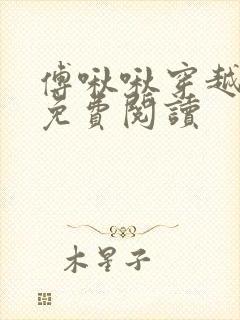 傅啾啾穿越
免費閱讀
木星子